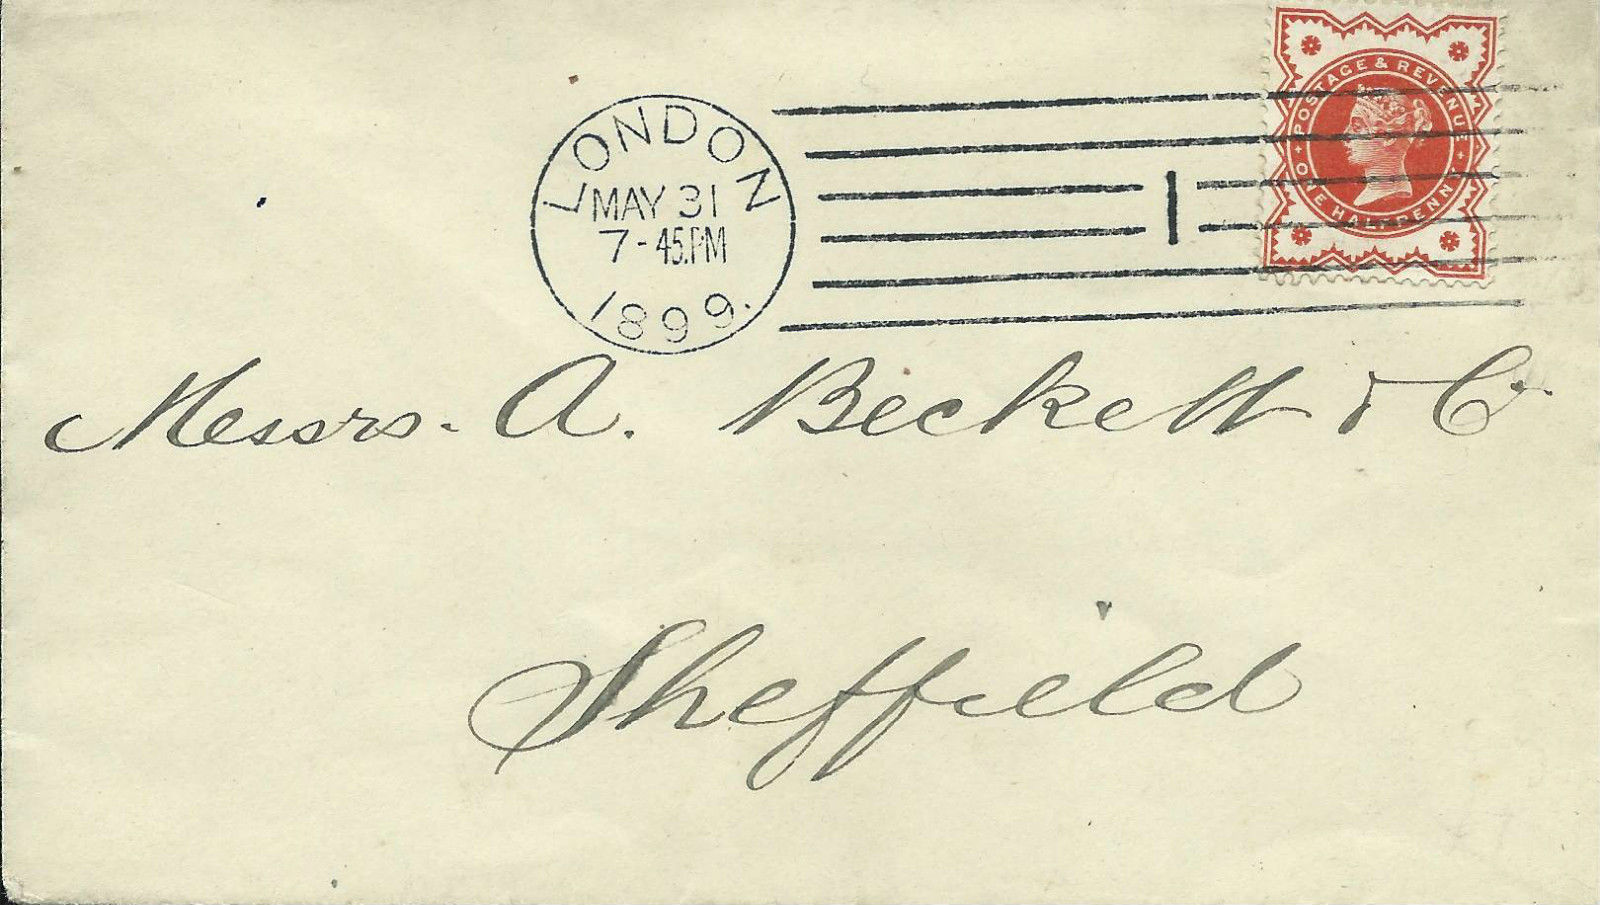 POSTAGE & REVENUE
ONE HALFPENNY
LONDON
MAY 31
7-45.PM
1899.
1
Messrs. A. Beckett & Co.
Sheffield